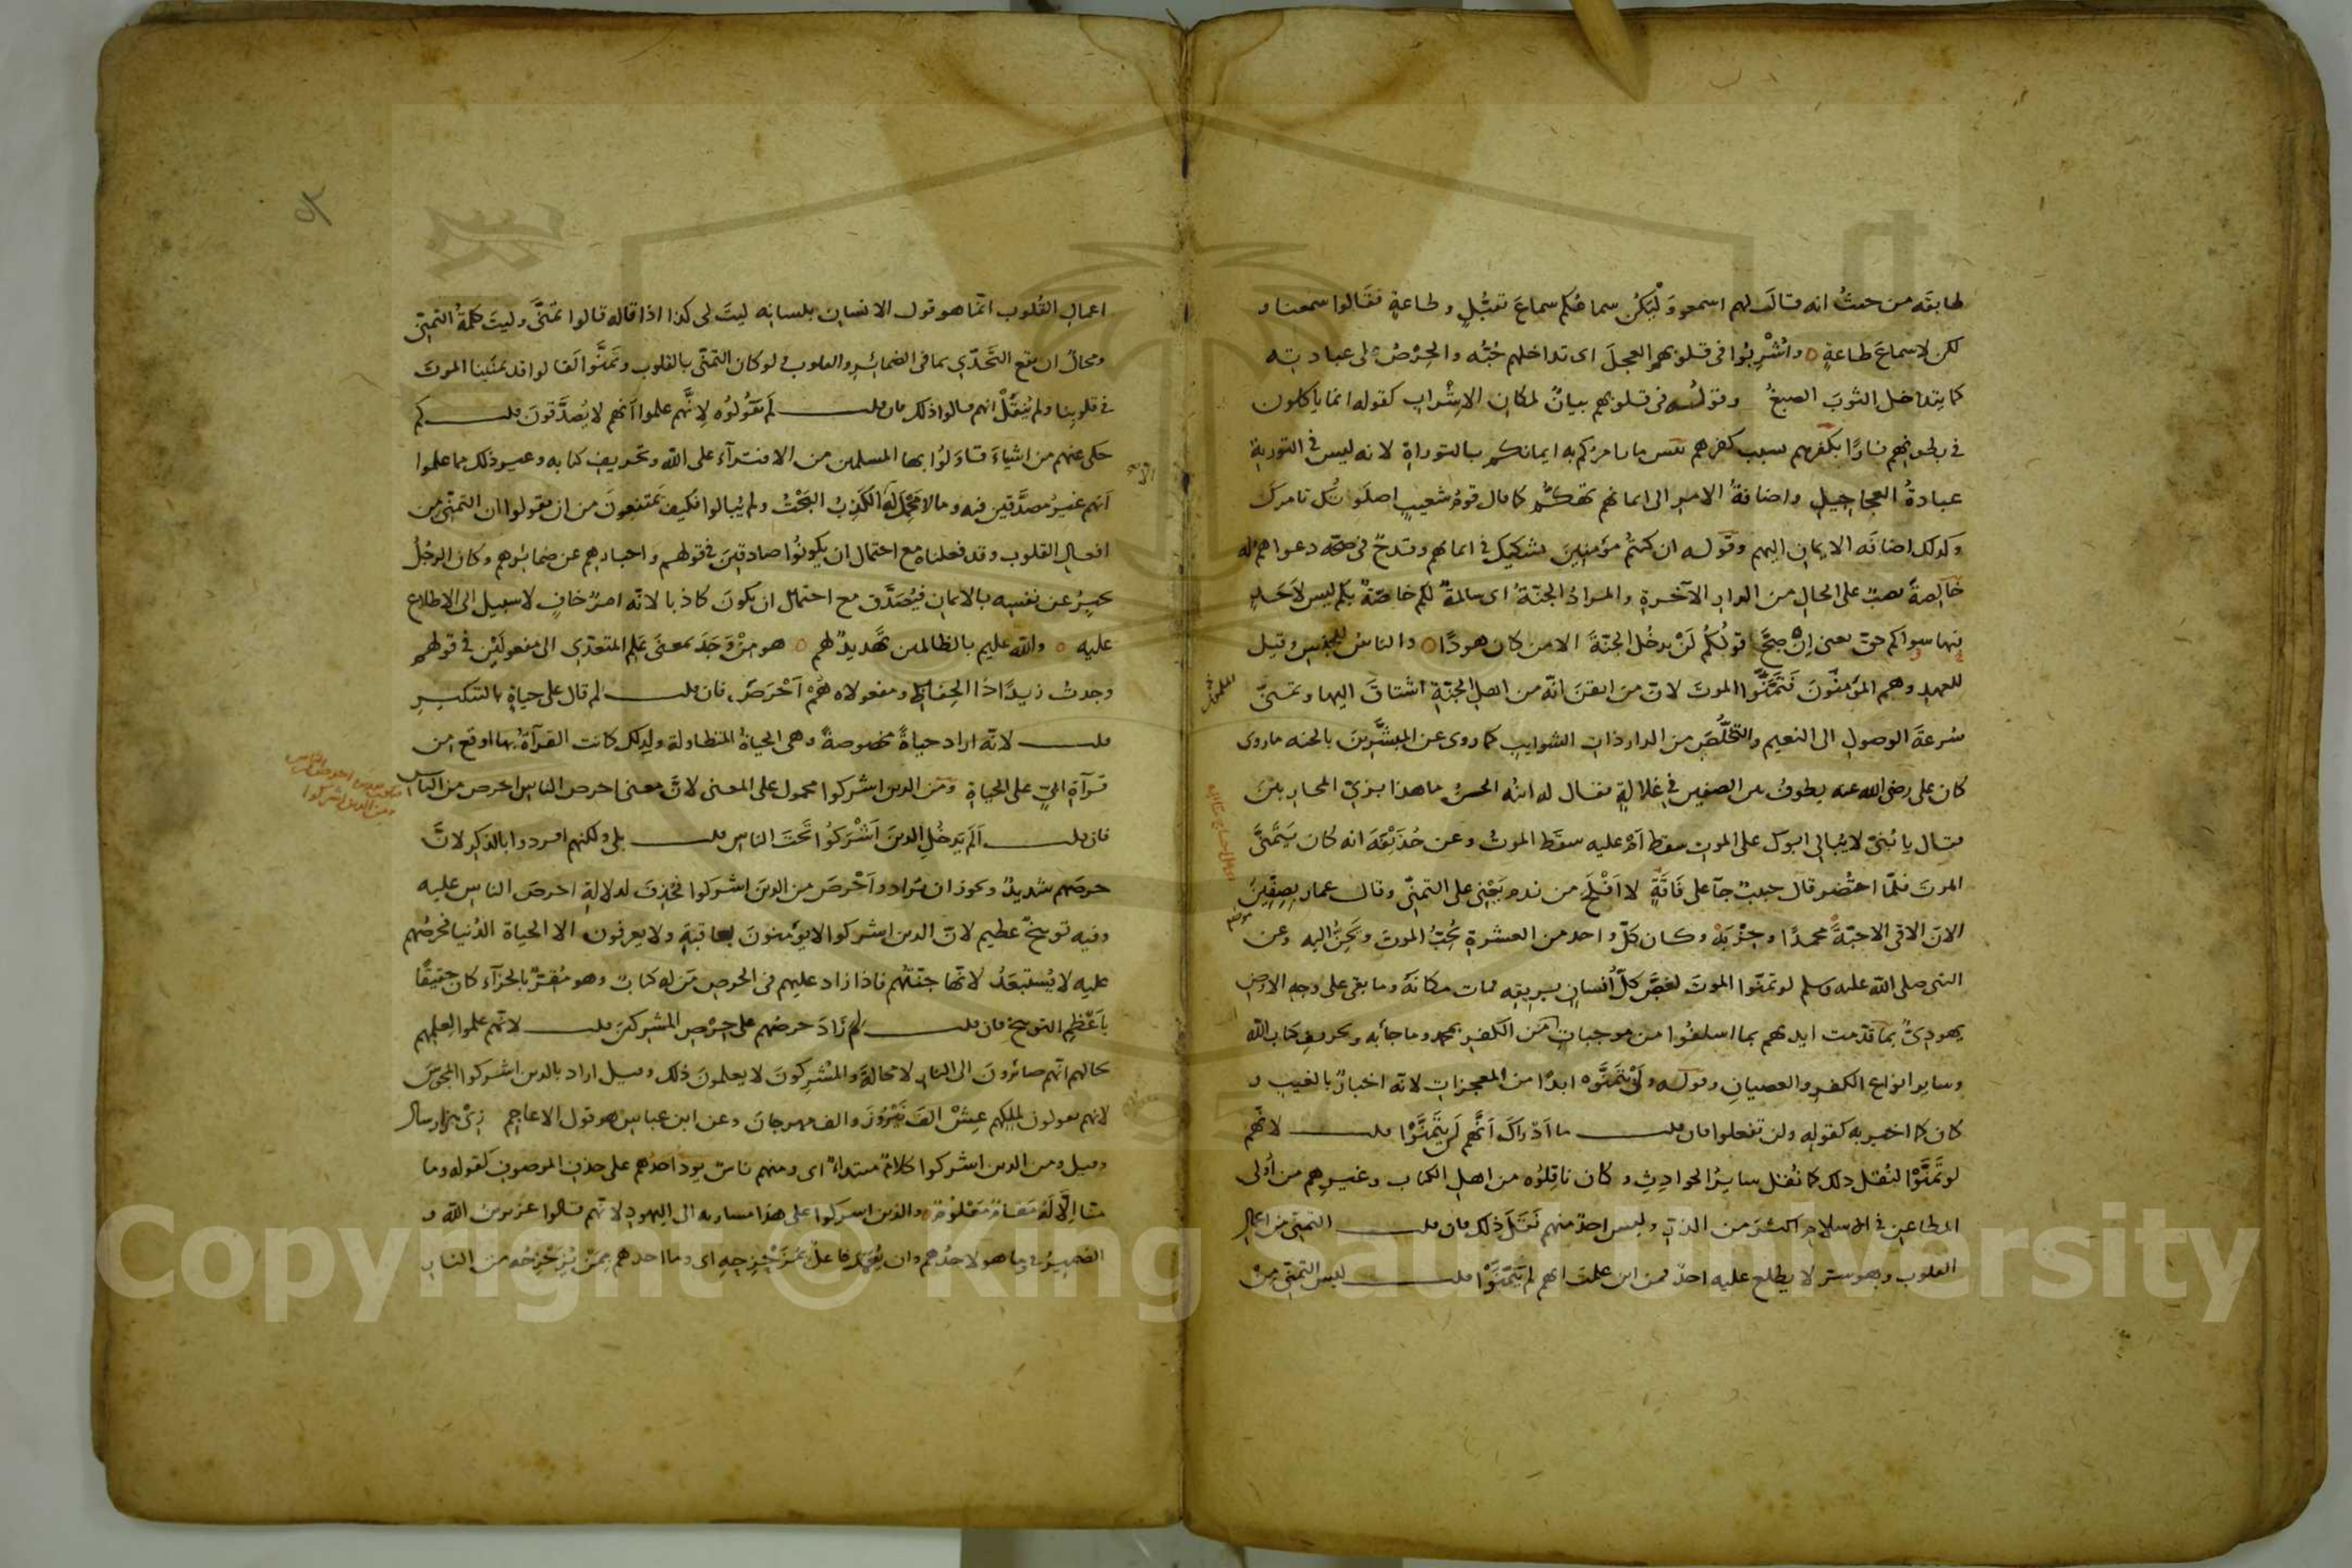 طابقه من حيثُ انه قالَ لهم اسمعوا وَلْيَكُن سماعُكم سماعَ تقبُّلٍ وطاعةٍ فقَالوا سمعنا و
لكن لا سماعَ طاعةٍ ٥ واُشْرِبُوا فى قلوبهم العِجلَ اى تداخلهم حُبّه والحِرْصُ على عبادته
كما يتداخل الثوبَ الصبغُ وقولُه فى قلوبهم بيانٌ لمكان الاِشْراب كقوله انما ياكلون
فى بطونهم نارًا بكفرهم بسبب كفرهم بئس ما يامركم به ايمانكم بالتوراة لانه ليس فى التورية
عبادةُ العجاجيلِ واضافةُ الامر الى ايمانهم تهكّم كما قال قومُ شعيبٍ اصلَوتُك تامرك
وكذلك اضافَه الايمان اليهم وقوله ان كنتم مؤمنينَ تشكيكٌ فى ايمانهم وقدحٌ فى صحّه دعواهم له
خَالِصةً نصبٌ على الحال من الدار الآخرةِ والمرادُ الجنّةُ اى سالمةً لكم خاصّةً بكم ليس لاَحَدٍ
سواكم فيها حقّ يعنى اِنْ صحَّ قولُكم لَنْ يدخُل الجنّةَ الا من كان هودًا ٥ والناسُ للجنسِ وقيل
للعهدِ وهم المؤمنُونَ فَتَمَنَّوُا الموتَ لانّ مَن ايقنَ انّه من اهلِ الجنّةِ اشتاقَ اليها وتمنّى
سُرعةَ الوصولِ الى النعيم والتخلُّصَ من الدار ذاتِ الشوايبِ كما روى عن المبشَّرِينَ بالجنه ما روى
كان على رضى الله عنه يطوفُ بين الصفين فى غلالةٍ فقال له ابنُه الحسنُ ما هذا بزىّ المحاربينَ
فقال يا بُنىّ لا يُبالى ابوكَ على الموتِ سقط اَمْ عليه سقَط الموتُ وعن حُذَيْفَة انه كان يَتَمنَّى
الموتَ فلمّا احتُضر قال حبيبٌ جآ على فَاقَةٍ لا اَفْلَحَ من ندم يَعْنِى على التمنّى وقال عمار بِصِفِّينَ
الان الاقى الاحبّةَ محمدًا وحِزْبَهْ وكان كلّ واحد من العشرةِ يُحِبُّ الموتَ ويَحِنُّ اليه وعن
النبى صلى الله عليه وسلم لو تمنّوا الموتَ لغَصَّ كلّ اِنسانٍ بريقِه فمات مكانَه وما بقى على وجهِ الارضِ
يهودىٌّ بما قدّمت ايديهم بما اسلفُوا من موجباتِ النار من الكفرِ بمحمد وما جاء به وتحريفِ كتاب الله
وسايرِ انواعِ الكفرِ والعصيانِ وقوله ولَنْ يَتَمَنَّوْه ابدًا من المعجزاتِ لانّه اخبارٌ بالغيب و
كان كما اخبر به كقوله ولن تفعلوا فان قلت ما اَدْراكَ اَنَّهم لَن يَتَمَنَّوْا قلت لانّهم
لو تَمَنَّوْا لنُقِل ذلك كما نُقل سايرُ الحوادِثِ وكان ناقِلُوه من اهلِ الكتاب وغيرِهم من اُولى
المطاعِن فى الاسلامِ اكثرَ من الذرّ وليس احدٌ منهم نَقَلَ ذلك فان قلت التمنّى من اعمالِ
القلوب وهو ستر لا يطلع عليه احدٌ فمن اين علمتَ انهم لم يَتَمَنَّوْا قلت ليس التمنّى مِنْ
اعمالِ القُلوب انّما هو قول الانسان بلسانِه ليتَ لى كذا اذا قاله قالوا تمنَّى وليتَ كلمةُ التمنّى
ومحالٌ ان يقع التَّحدّى بما فى الضمائِر والقلوب ولو كان التمنّى بالقلوب وتَمنَّوا لَقالوا قد تمنّينا الموتَ
فى قلوبِنا ولم يُنقَلْ انهم قالوا ذلك فان قلت لَم يَقُولُوه لِانّهم علموا اَنهم لا يُصدَّقونَ قلت كم
حكى عنهم من اشياءَ قاوَلوُا بها المسلمين من الافترآءِ على الله وتحريفِ كتابه وغير ذلك مما علموا
اَنهم غيرُ مُصدَّقين فيه وما لا مَحْمِلَ له اِلّا الكَذِبُ البَحْتُ ولم يُبالوا فكيف يَمتنِعونَ من ان يقولوا ان التمنّى من
افعالِ القلوب وقد فعلناه مع احتمال ان يكونُوا صادقينَ فى قولهم واخبارهم عن ضمائرهم وكان الرجُلُ
يخبرُ عن نفسِه بالايمان فيُصَدَّق مع احتمال ان يكونَ كاذبا لانّه امرٌ خافٍ لا سبيل الى الاطلاع
عليه ٥ والله عليم بالظالمين تهديدٌ لهم ٥ هو مِنْ وَجَدَ بمعنَى عَلِم المتعدّى الى مفعولَيْن فى قولهم
وجدتُ زيدًا ذا الحِفاظِ ومفعولاه هُمْ اَحْرَصَ فان قلت لم قال على حياةٍ بالتنكيرِ
قلت لانّه اراد حياةً مخصوصةً وهى الحياةُ المتطاولة ولذلك كانت القرآءةُ بها اوقع من
قرآةِ اُبىّ على الحياةِ ومن الذين اشركوا محمول على المعنى لانَّ معنى احرص الناسِ احرص من الناس
فان قلت اَلَم يَدخُلِ الذينَ اَشْرَكوُا تَحْتَ الناس قلت بلى ولكنهم افردوا بالذكرِ لانَّ
حرصَهم شديدٌ ويجوز ان يُراد واَحْرصَ من الذينَ اشركوا فحُذِفَ لدلالةِ احرصَ الناسِ عليه
وفيه توبيخٌ عظيم لانّ الذين اشركوا لا يؤمنونَ بعاقبةٍ ولا يعرفون الا الحياةَ الدُنيا فحرصُهم
عليه لا يُستبعَدُ لانّها جنّتُهم فاذا زاد عليهم فى الحرصِ مَن له كتابٌ وهو مُقِرّ بالجزآءِ كان حقيقًا
باَعْظَمِ التوبيخ فان قلت لِمَ زادَ حرصُهم على حِرْصِ المشركينَ قلت لانّهم علموا لعلمِهم
بحالِهم انّهم صائرونَ الى النارِ لا محالةَ والمُشْرِكونَ لا يعلمونَ ذلك وقيل اراد بالذين اشركوا المجوسَ
لانهم يقولون لملِكِهم عِشْ الفَ نَيْرُوزَ والف مهرجان وعن ابن عباس هو قول الاعاجم زِىْ هزار سال
وقيل ومن الذين اشركوا كلامٌ مبتداءٌ اى ومنهم ناسٌ يودّ احدُهم على حذفِ الموصوفِ كقوله وما
منّا اِلَّا لَهُ مَقامٌ مَعْلُومٌ ٥ والذين اشركوا على هذا مشاربه الى اليهودِ لانّهم قالوا عزير بن الله و
الضميرُ فى وما هو لاحدُهم وان يُعَمَّرَ فاعلُ بمُزَحْزِحِهِ اى وما احدهم بِمَنْ يُزَحْزِحُه من النارِ